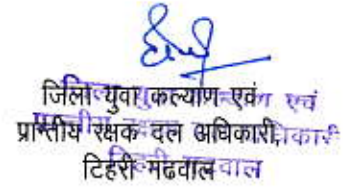 जिला युवा कल्याण एवं
प्रान्तीय रक्षक दल अधिकारी,
टिहरी गढवाल